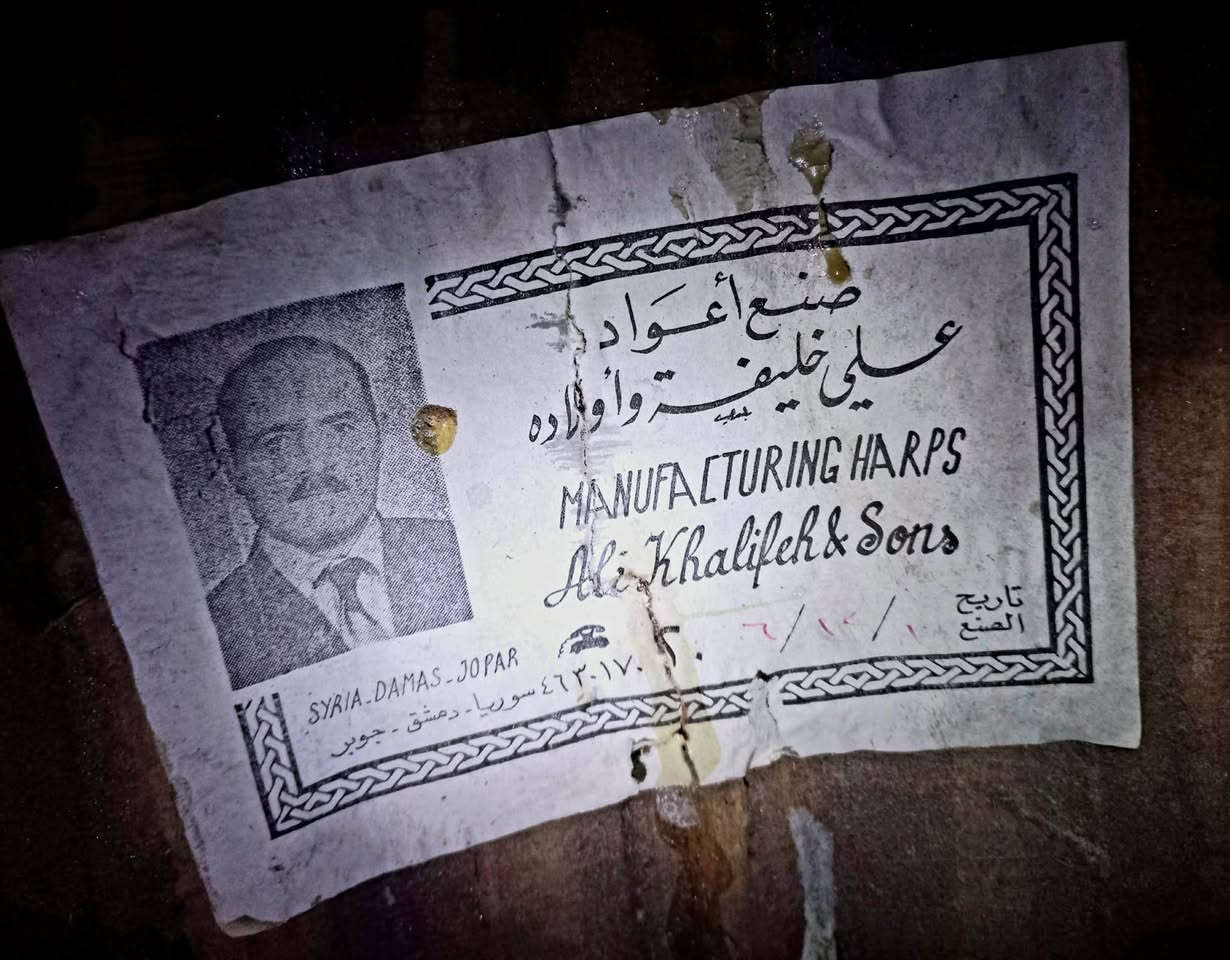 صنع أعواد
علي خليفة وأولاده
MANUFACTURING HARPS
Ali Khalifeh & Sons
تاريخ
الصنع
SYRIA_DAMAS_JOPAR
سوريا - دمشق - جوبر